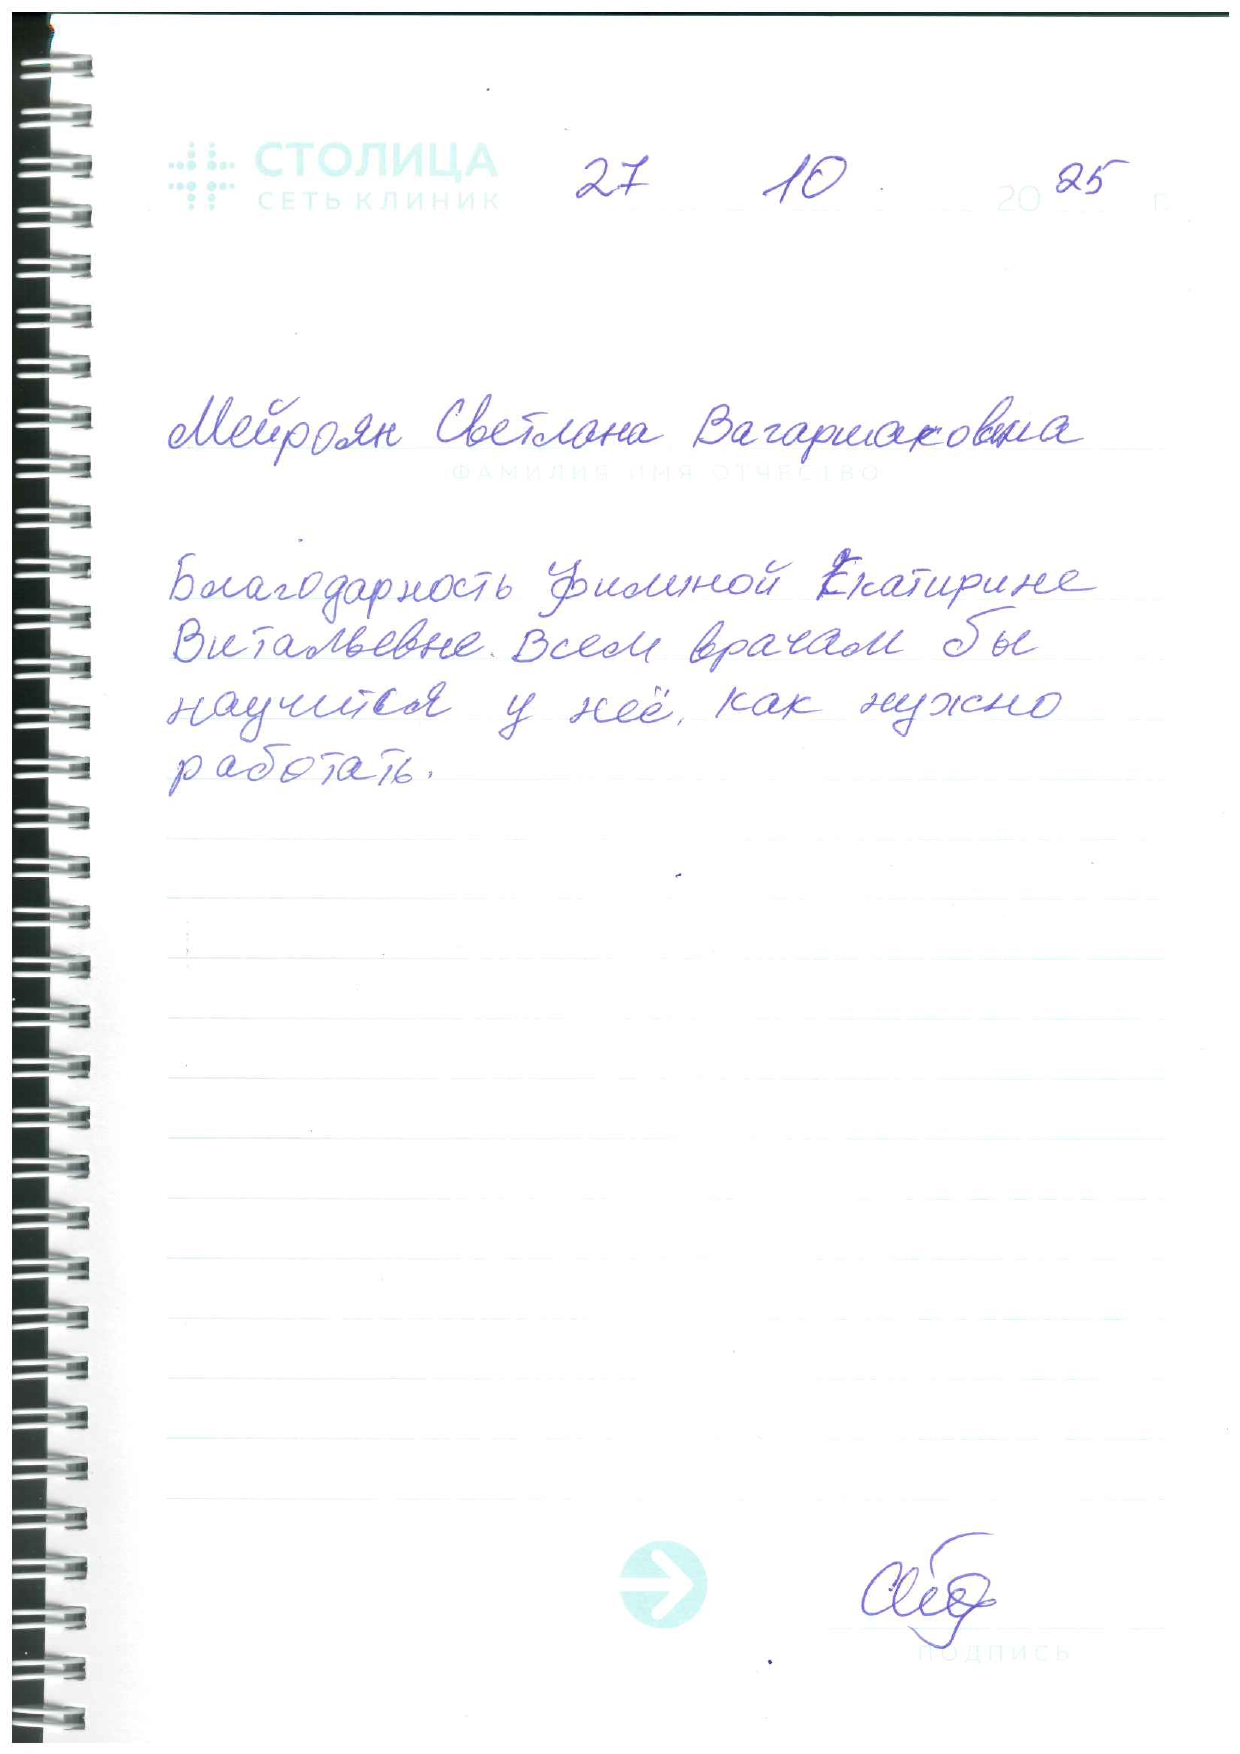 СТОЛИЦА
СЕТЬ КЛИНИК
27 10 2025 г.
Мейроян Светлана Вагаршаковна
ФАМИЛИЯ ИМЯ ОТЧЕСТВО
Благодарность Филиной Екатирине
Витальевне. Всем врачам бы
научится у неё, как нужно
работать.
ПОДПИСЬ